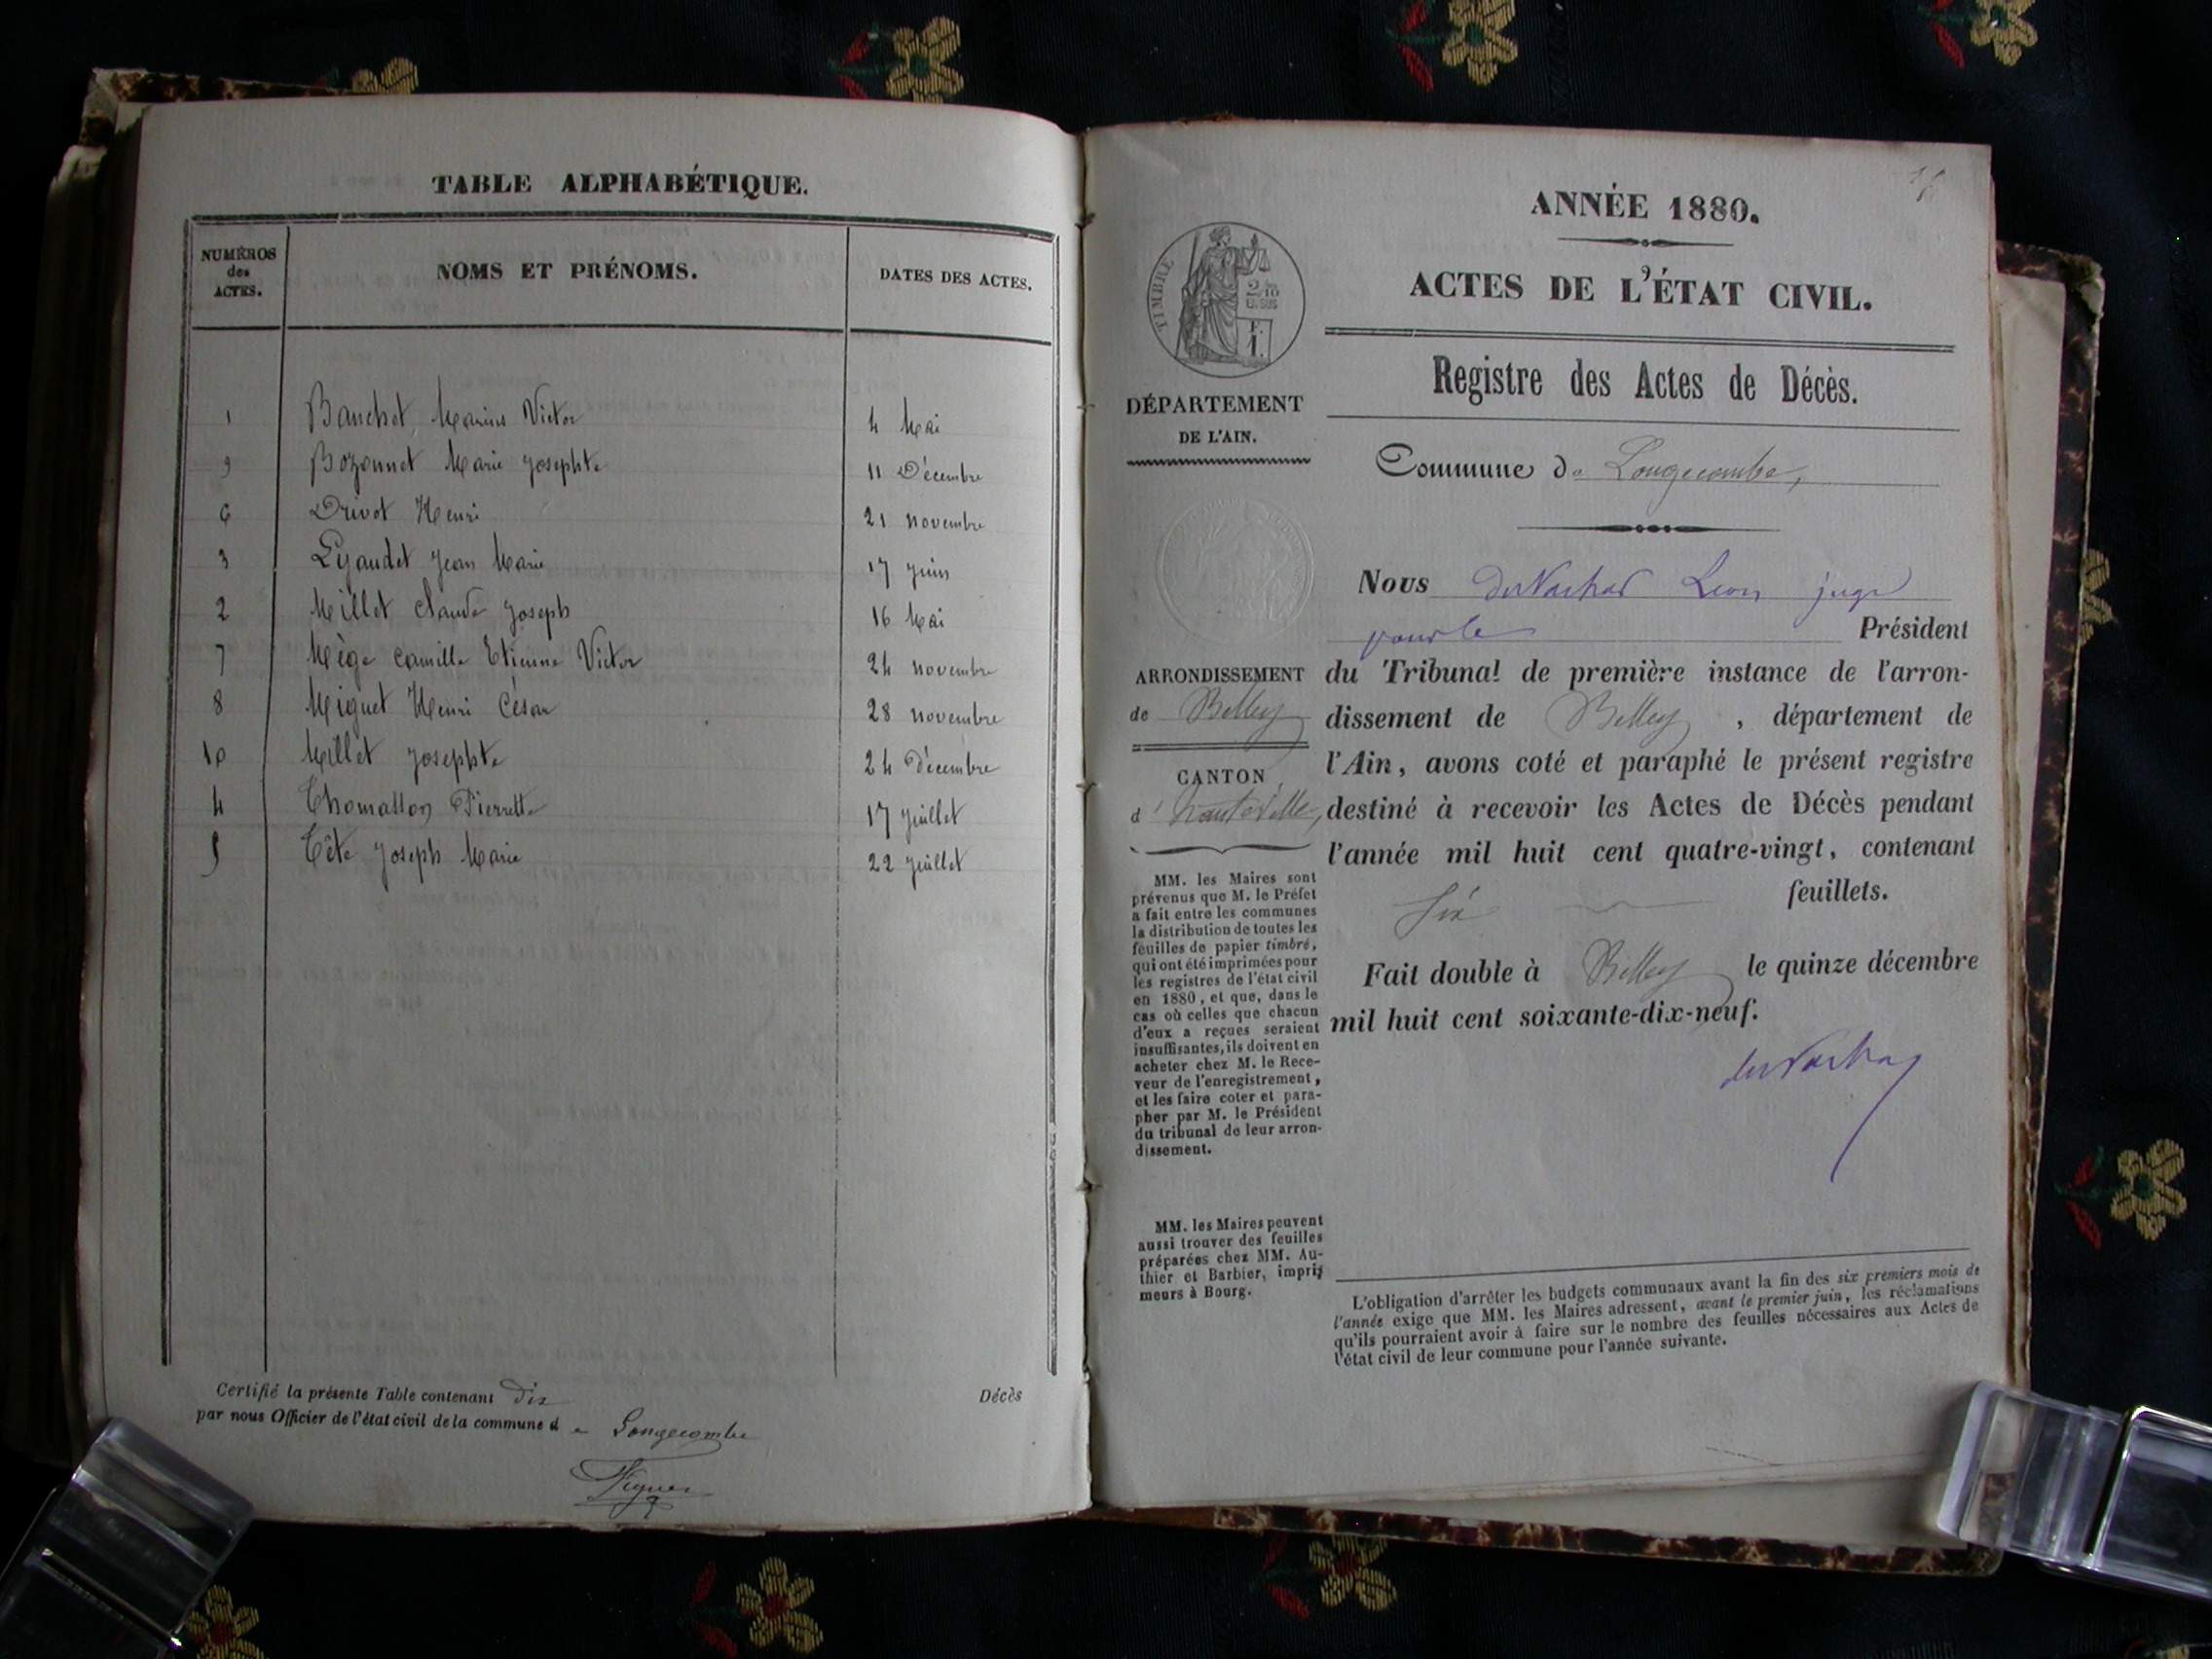 TABLE ALPHABÉTIQUE.
NUMÉROS des ACTES. NOMS ET PRÉNOMS. DATES DES ACTES.
1 Banchet, Marius Victor 4 Mai
9 Bozonnet Marie Josephte 11 Décembre
6 Drivet Henri 21 novembre
3 Lyaudet Jean Marie 17 juin
2 Millet Claude Joseph 16 Mai
7 Mège Camille Etienne Victor 24 novembre
8 Miguet Henri César 28 novembre
10 Millet Josephte 24 Décembre
4 Thomasson Pierrette 17 juillet
5 Tête Joseph Marie 22 juillet
Certifié la présente Table contenant dix Décès
par nous Officier de l'état civil de la commune de Longecombe
ANNÉE 1880.
ACTES DE L'ÉTAT CIVIL.
Registre des Actes de Décès.
TIMBRE
2/10
EN SUS
F.
1.
DÉPARTEMENT
DE L'AIN.
ARRONDISSEMENT
de Belley
CANTON
d'hauteville,
MM. les Maires sont
prévenus que M. le Préfet
a fait entre les communes
la distribution de toutes les
feuilles de papier timbré,
qui ont été imprimées pour
les registres de l'état civil
en 1880, et que, dans le
cas où celles que chacun
d'eux a reçues seraient
insuffisantes, ils doivent en
acheter chez M. le Rece-
veur de l'enregistrement,
et les faire coter et para-
pher par M. le Président
du tribunal de leur arron-
dissement.
MM. les Maires peuvent
aussi trouver des feuilles
préparées chez MM. Au-
thier et Barbier, impri-
meurs à Bourg.
Commune de Longecombe,
Nous Leon juge
pour le Président
du Tribunal de première instance de l'arron-
dissement de Belley, département de
l'Ain, avons coté et paraphé le présent registre
destiné à recevoir les Actes de Décès pendant
l'année mil huit cent quatre-vingt, contenant
six feuillets.
Fait double à Belley le quinze décembre
mil huit cent soixante-dix-neuf.
L'obligation d'arrêter les budgets communaux avant la fin des six premiers mois de
l'année exige que MM. les Maires adressent, avant le premier juin, les réclamations
qu'ils pourraient avoir à faire sur le nombre des feuilles nécessaires aux Actes de
l'état civil de leur commune pour l'année suivante.